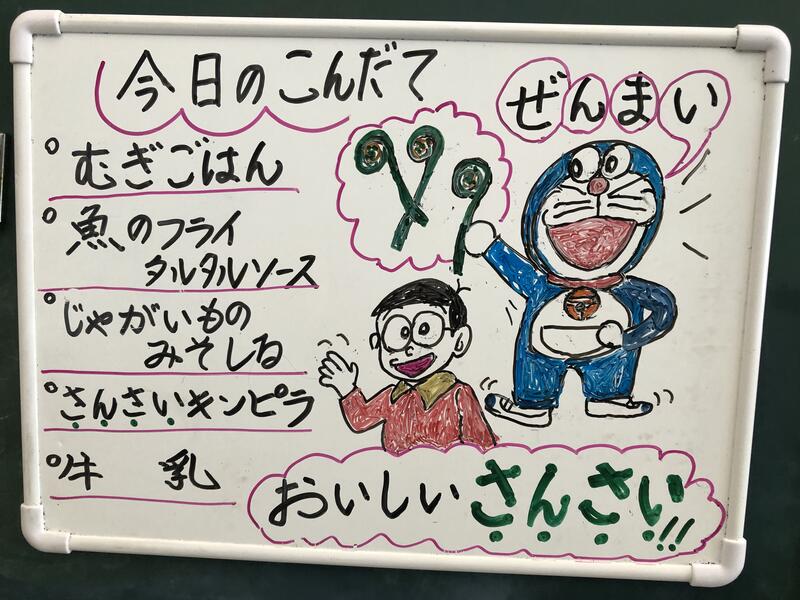 今日のこんだて
ぜんまい
むぎごはん
魚のフライ
タルタルソース
じゃがいもの
みそしる
さんさいキンピラ
牛乳
おいしいさんさい!!!